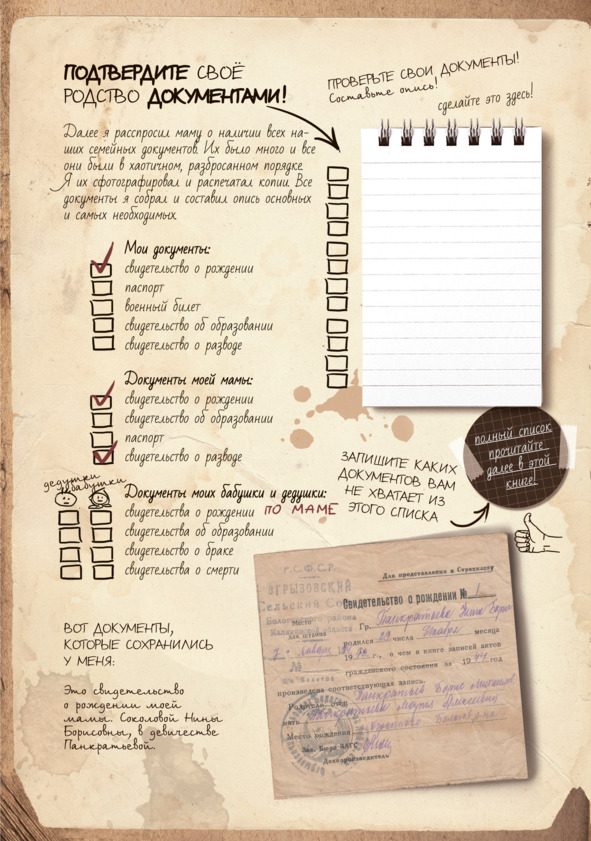 ПОДТВЕРДИТЕ СВОЁ
РОДСТВО ДОКУМЕНТАМИ!
ПРОВЕРЬТЕ СВОИ ДОКУМЕНТЫ!
Составьте опись!
сделайте это здесь!
Далее я расспросил маму о наличии всех на-
ших семейных документов. Их было много и все
они были в хаотичном, разбросанном порядке.
Я их сфотографировал и распечатал копии. Все
документы я собрал и составил опись основных
и самых необходимых.
Мои документы:
свидетельство о рождении
паспорт
военный билет
свидетельство об образовании
свидетельство о разводе
Документы моей мамы:
свидетельство о рождении
свидетельство об образовании
паспорт
свидетельство о разводе
полный список
прочитайте
далее в этой
книге!
ЗАПИШИТЕ КАКИХ
ДОКУМЕНТОВ ВАМ
НЕ ХВАТАЕТ ИЗ
ЭТОГО СПИСКА
дедушки
бабушки
Документы моих бабушки и дедушки:
свидетельства о рождении ПО МАМЕ
свидетельства об образовании
свидетельство о браке
свидетельства о смерти
ВОТ ДОКУМЕНТЫ,
КОТОРЫЕ СОХРАНИЛИСЬ
У МЕНЯ:
Это свидетельство
о рождении моей
мамы. Соколовой Нины
Борисовны, в девичестве
Панкратьевой.
Р.С.Ф.С.Р.
Для представления в Страхкассу
ОГРЫЗОВСКИЙ
Сельский Со
района
Свидетельство о рождении № 1
Место
Для штампа
Гр. Панкратьева Нина Борис
родился 29 числа января месяца
19 г., о чем в книге записей актов
гражданского состояния за 1944 г.
произведена соответствующая запись.
Родители: отец Панкратьев Борис
мать Панкратьева
Место рождения
Зав. Бюро ЗАГС
Делопроизводитель